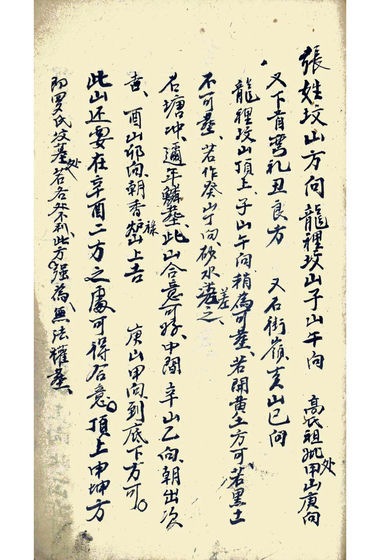 張姓坟山方向龍裡坟山子山午向 高氏祖坟处甲山庚向
又下首 丑艮方 又石街嶺亥山巳向
龍裡坟山頂上、子山午向、稍為可葬、若開黄土方可、若黑土
不可葬、若作癸山丁向、砂水差之、
名塘坤、 葬、此山合意可好、中間辛山乙向、朝出次
吉、酉山卯向、朝香炉上吉 庚山甲向、到底下方可。
此山还要在辛酉二方之處可得合意。頂上申坤方
即罗氏坟墓处、若各处不利、此方强為、無法權葬、